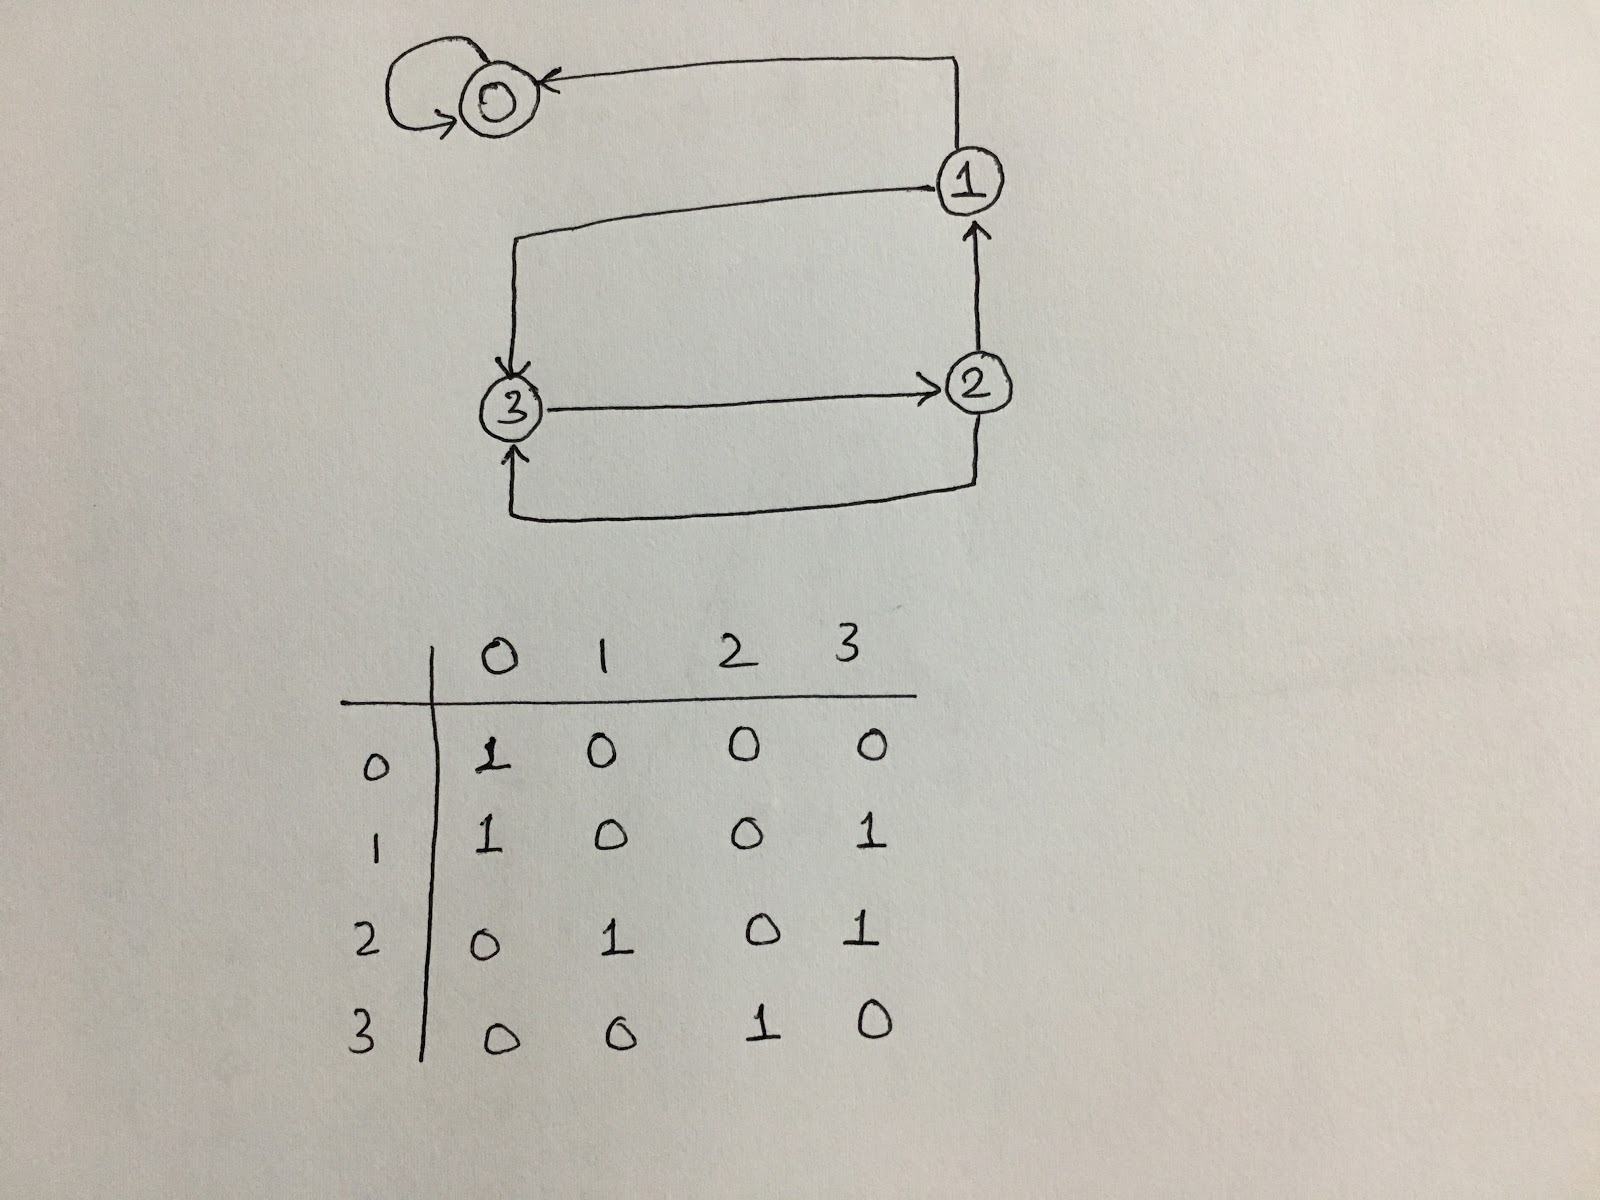 0
1
3
2
0 1 2 3
0 1 0 0 0
1 1 0 0 1
2 0 1 0 1
3 0 0 1 0